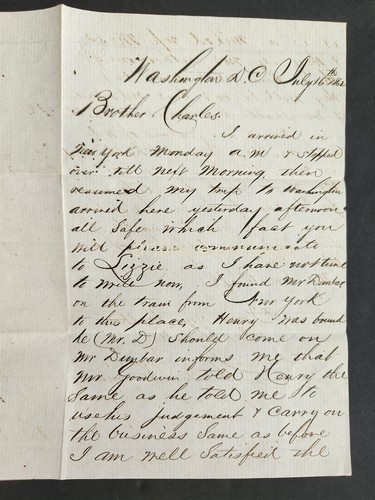 Washington D.C. July 16th 1862
Brother Charles.
I arrived in
New York Monday a.m & stopped
over till next Morning then
resumed my trip to Washington
arrived here yesterday afternoon
all safe which fact you
will please communicate
to Lizzie as I have not time
to write now, I found Mr Dunbar
on the train from New York
to this place, Henry was bound
he (Mr. D) should come on
Mr Dunbar informs me that
Mr Goodwin told Henry the
same as he told me to
use his Judgement & carry on
the business same as before
I am well satisfied the